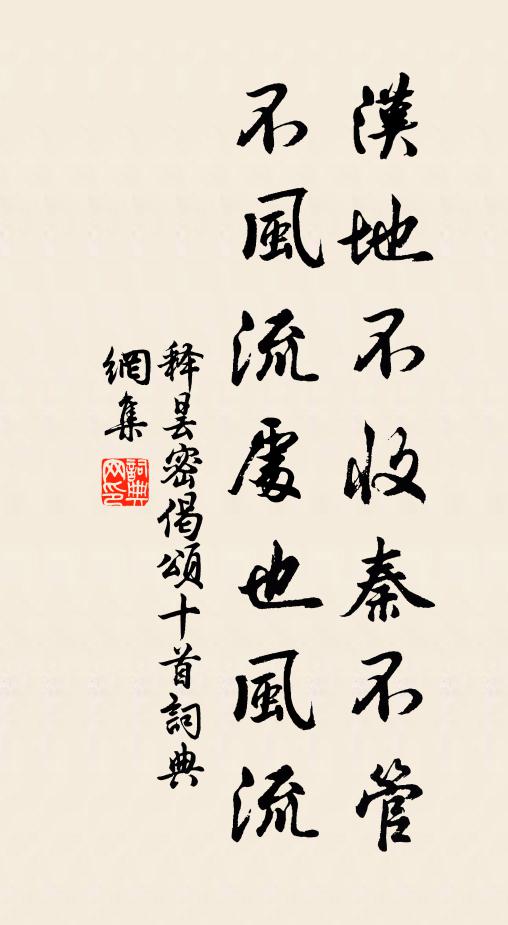 漢地不收秦不管
不風流處也風流
释昙密偈頌十首詞典
網集
詞典网印